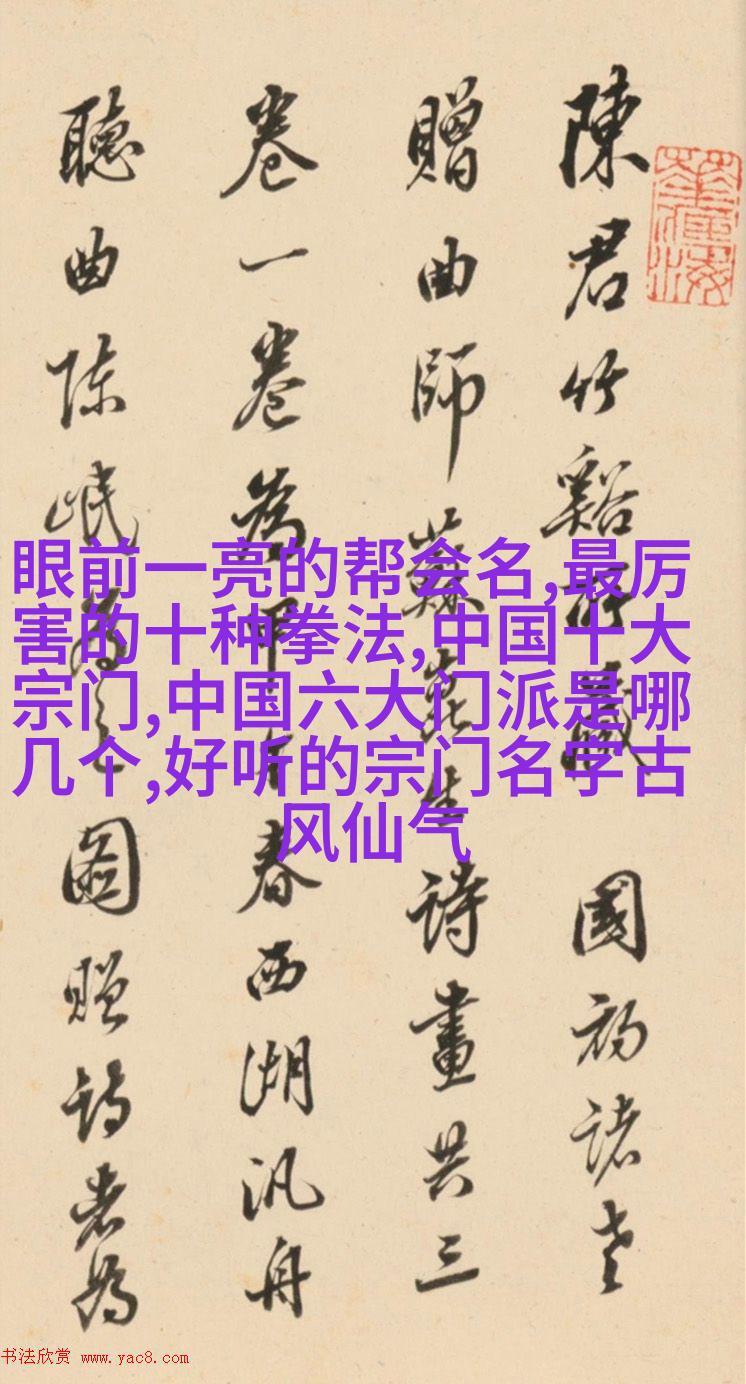 陳君竹谿所藏 國初諸老
贈曲師蘇崑生詩畫共三
卷一卷為甲午春西湖汎舟
聽曲陳岷為之圖贈詩者為
眼前一亮的帮会名,最厉
害的十种拳法,中国十大
宗门,中国六大门派是哪
几个,好听的宗门名字古
风仙气
书法欣赏 www.yac8.com